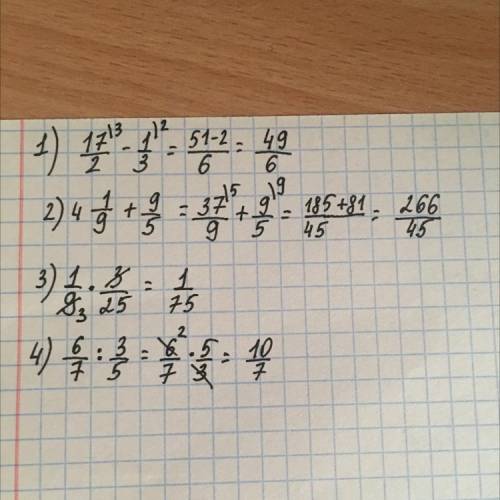 1) 17/2 \3 - 1/3 \2 = 51-2/6 = 49/6
2) 4 1/9 + 9/5 = 37/9 \5 + 9/5 \9 = 185+81/45 = 266/45
3) 1/9 3 · 3/25 = 1/75
4) 6/7 : 3/5 = 6/7 2 · 5/3 = 10/7